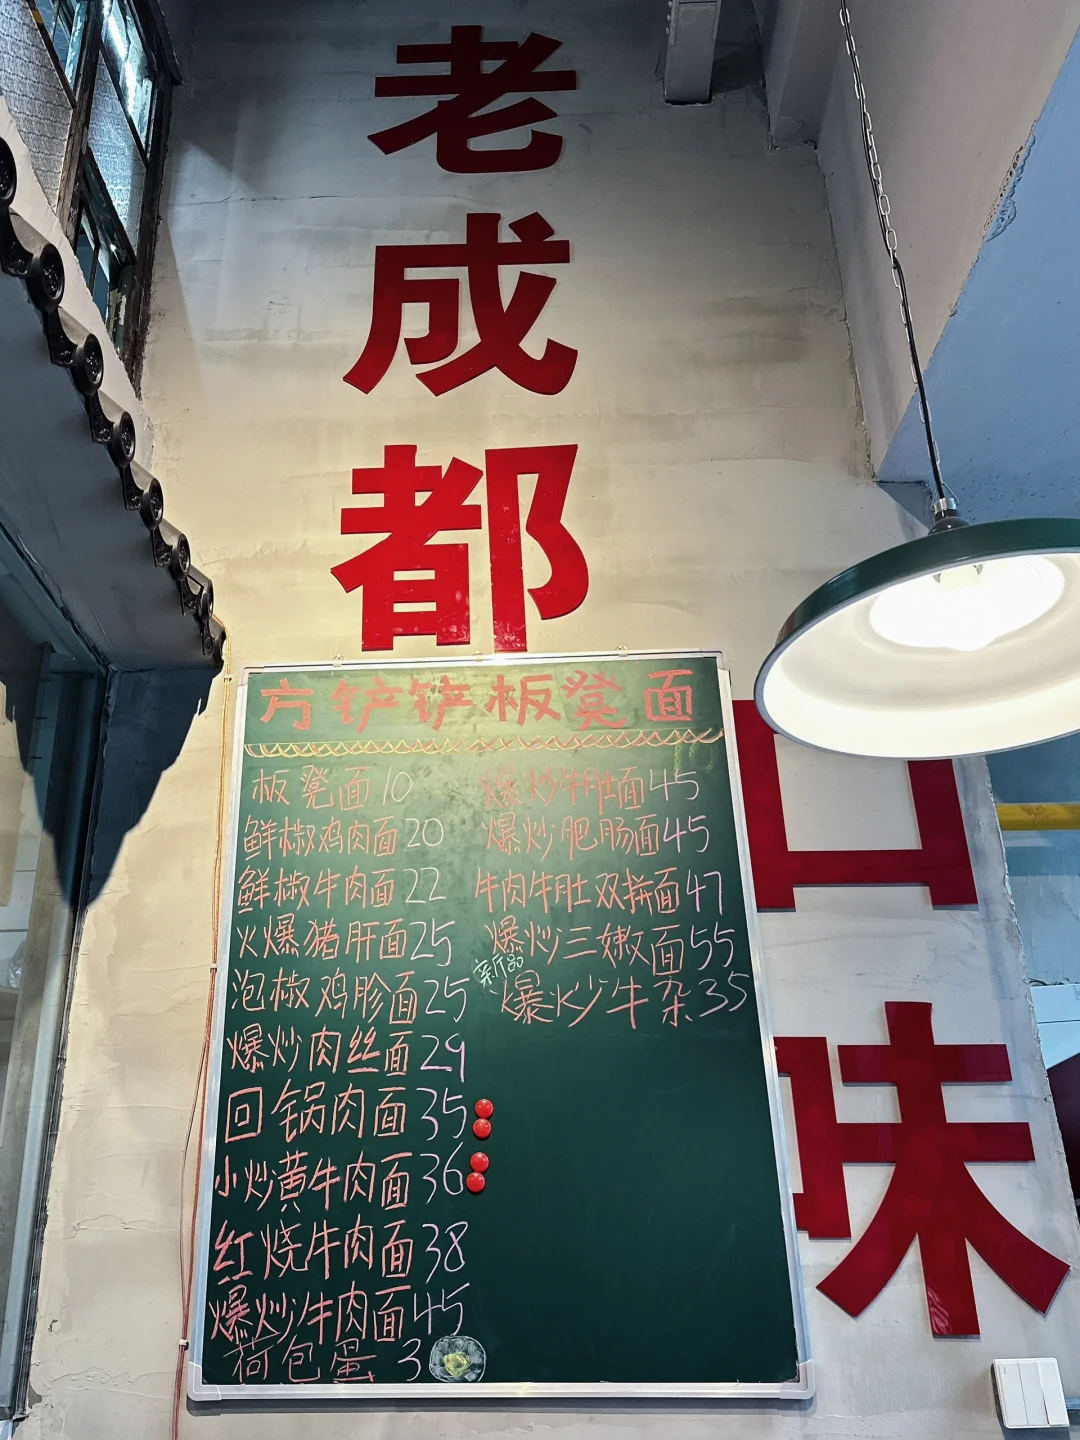 老成都
口味
方铲铲板凳面
板凳面10
鲜椒鸡肉面20
鲜椒牛肉面22
火爆猪肝面25
泡椒鸡胗面25
爆炒肉丝面29
回锅肉面35
小炒黄牛肉面36
红烧牛肉面38
爆炒牛肉面45
荷包蛋3
爆炒牛肚面45
爆炒肥肠面45
牛肉牛肚双拼面47
爆炒三嫩面55
新品
爆炒牛杂35